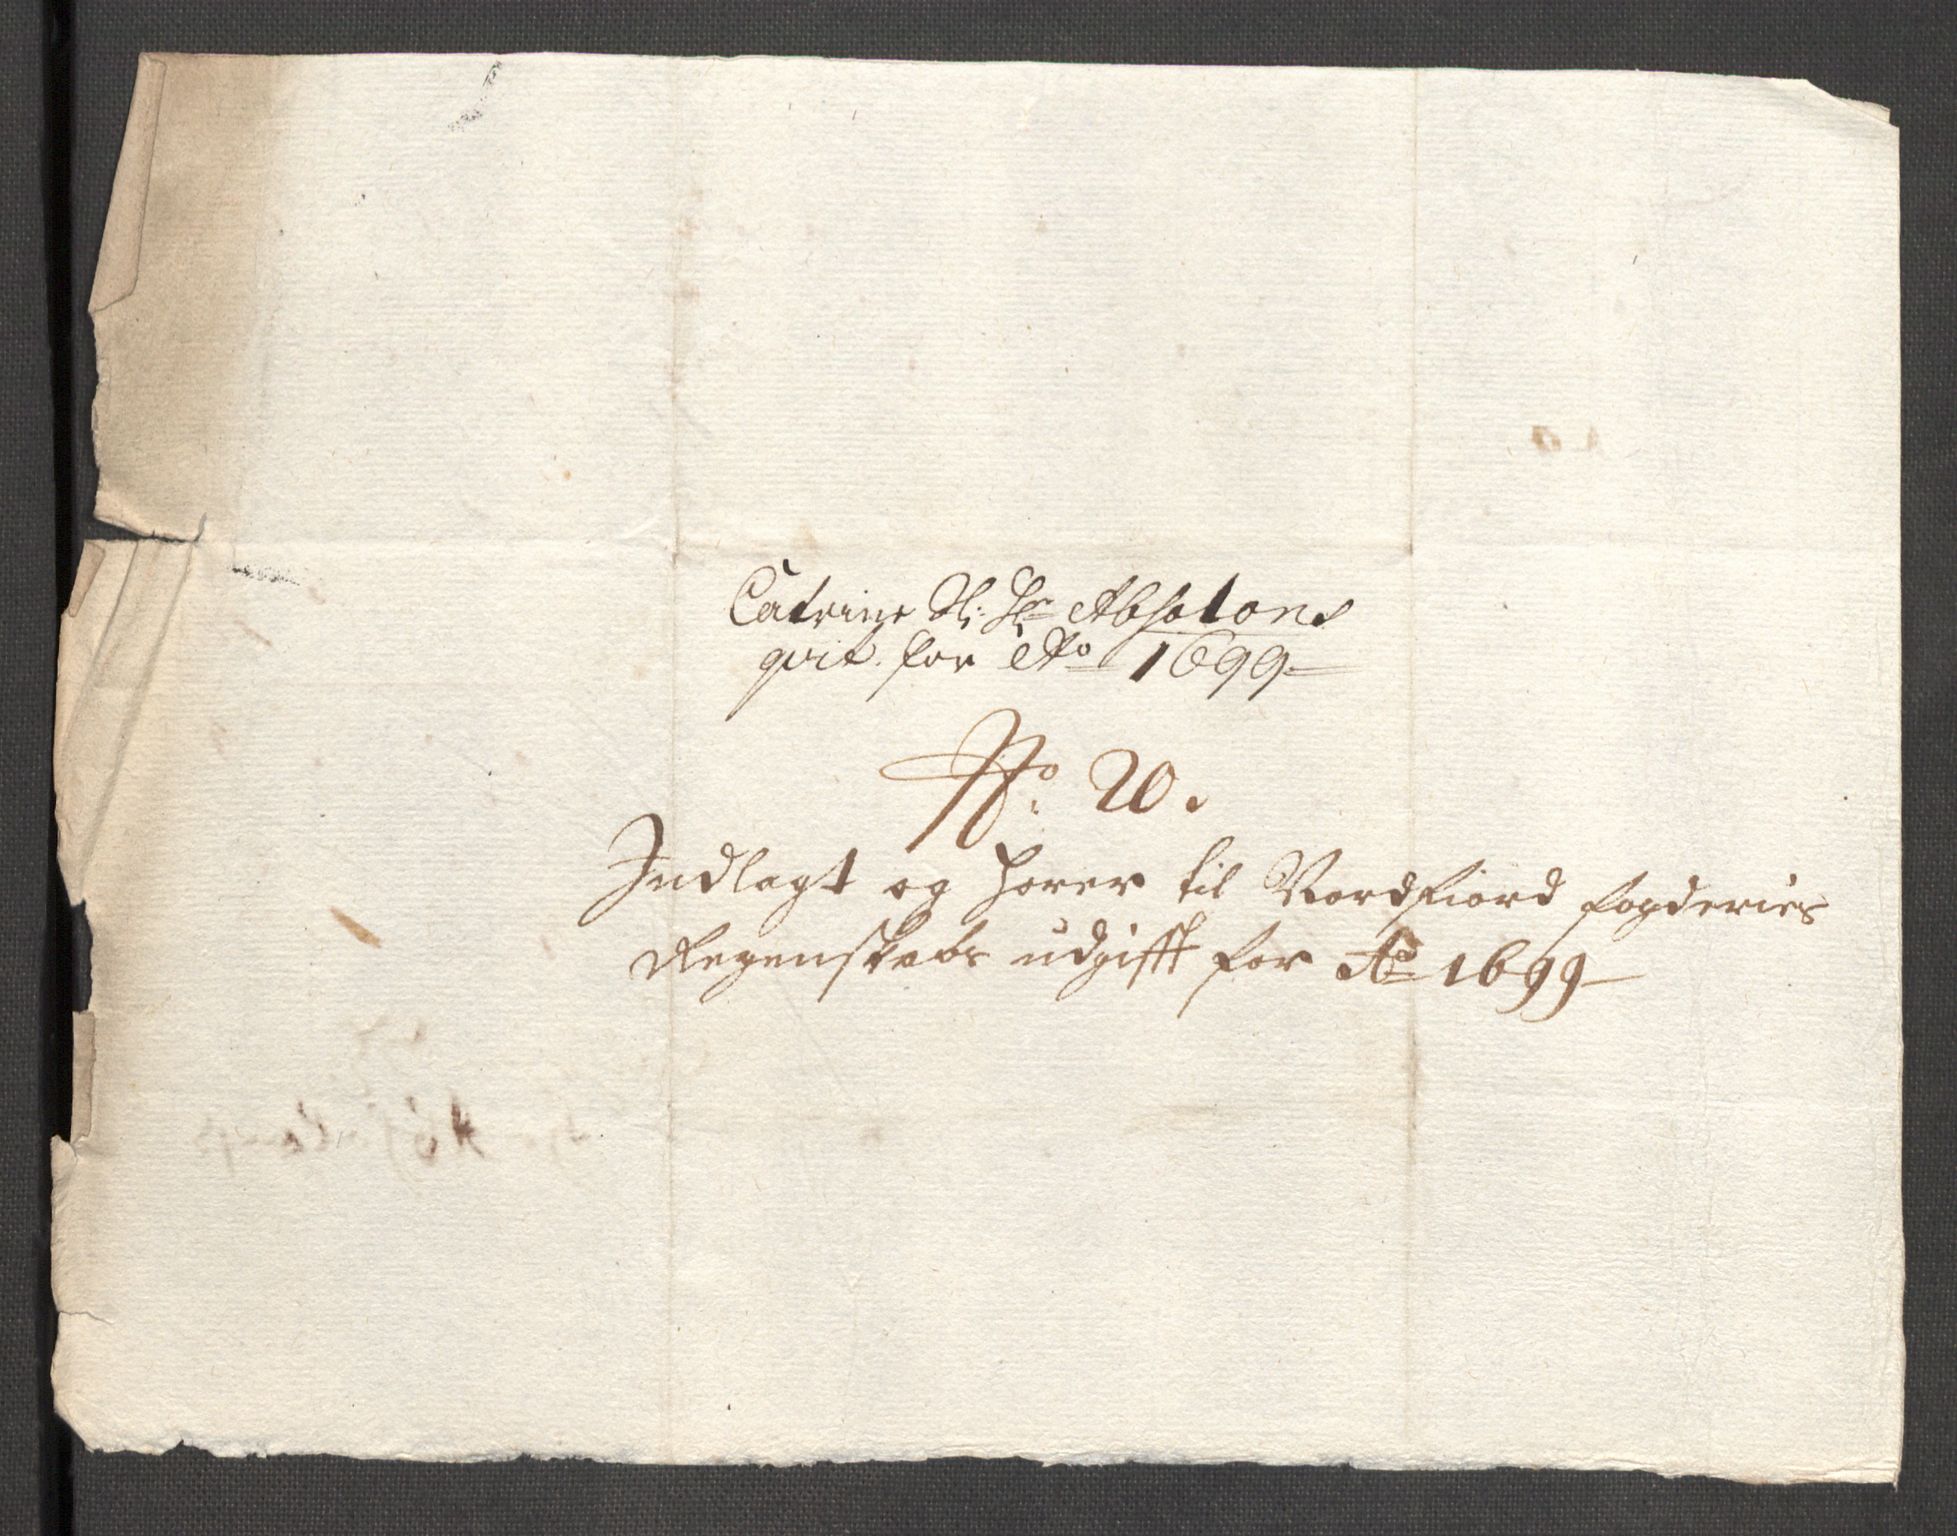 Catrine Sl: Hr Absolons
qvit. for Ao 1699
No. 20.
Indlagt og hører til Nordfiord fogderies
Regenskabs udgifft for Ao 1699